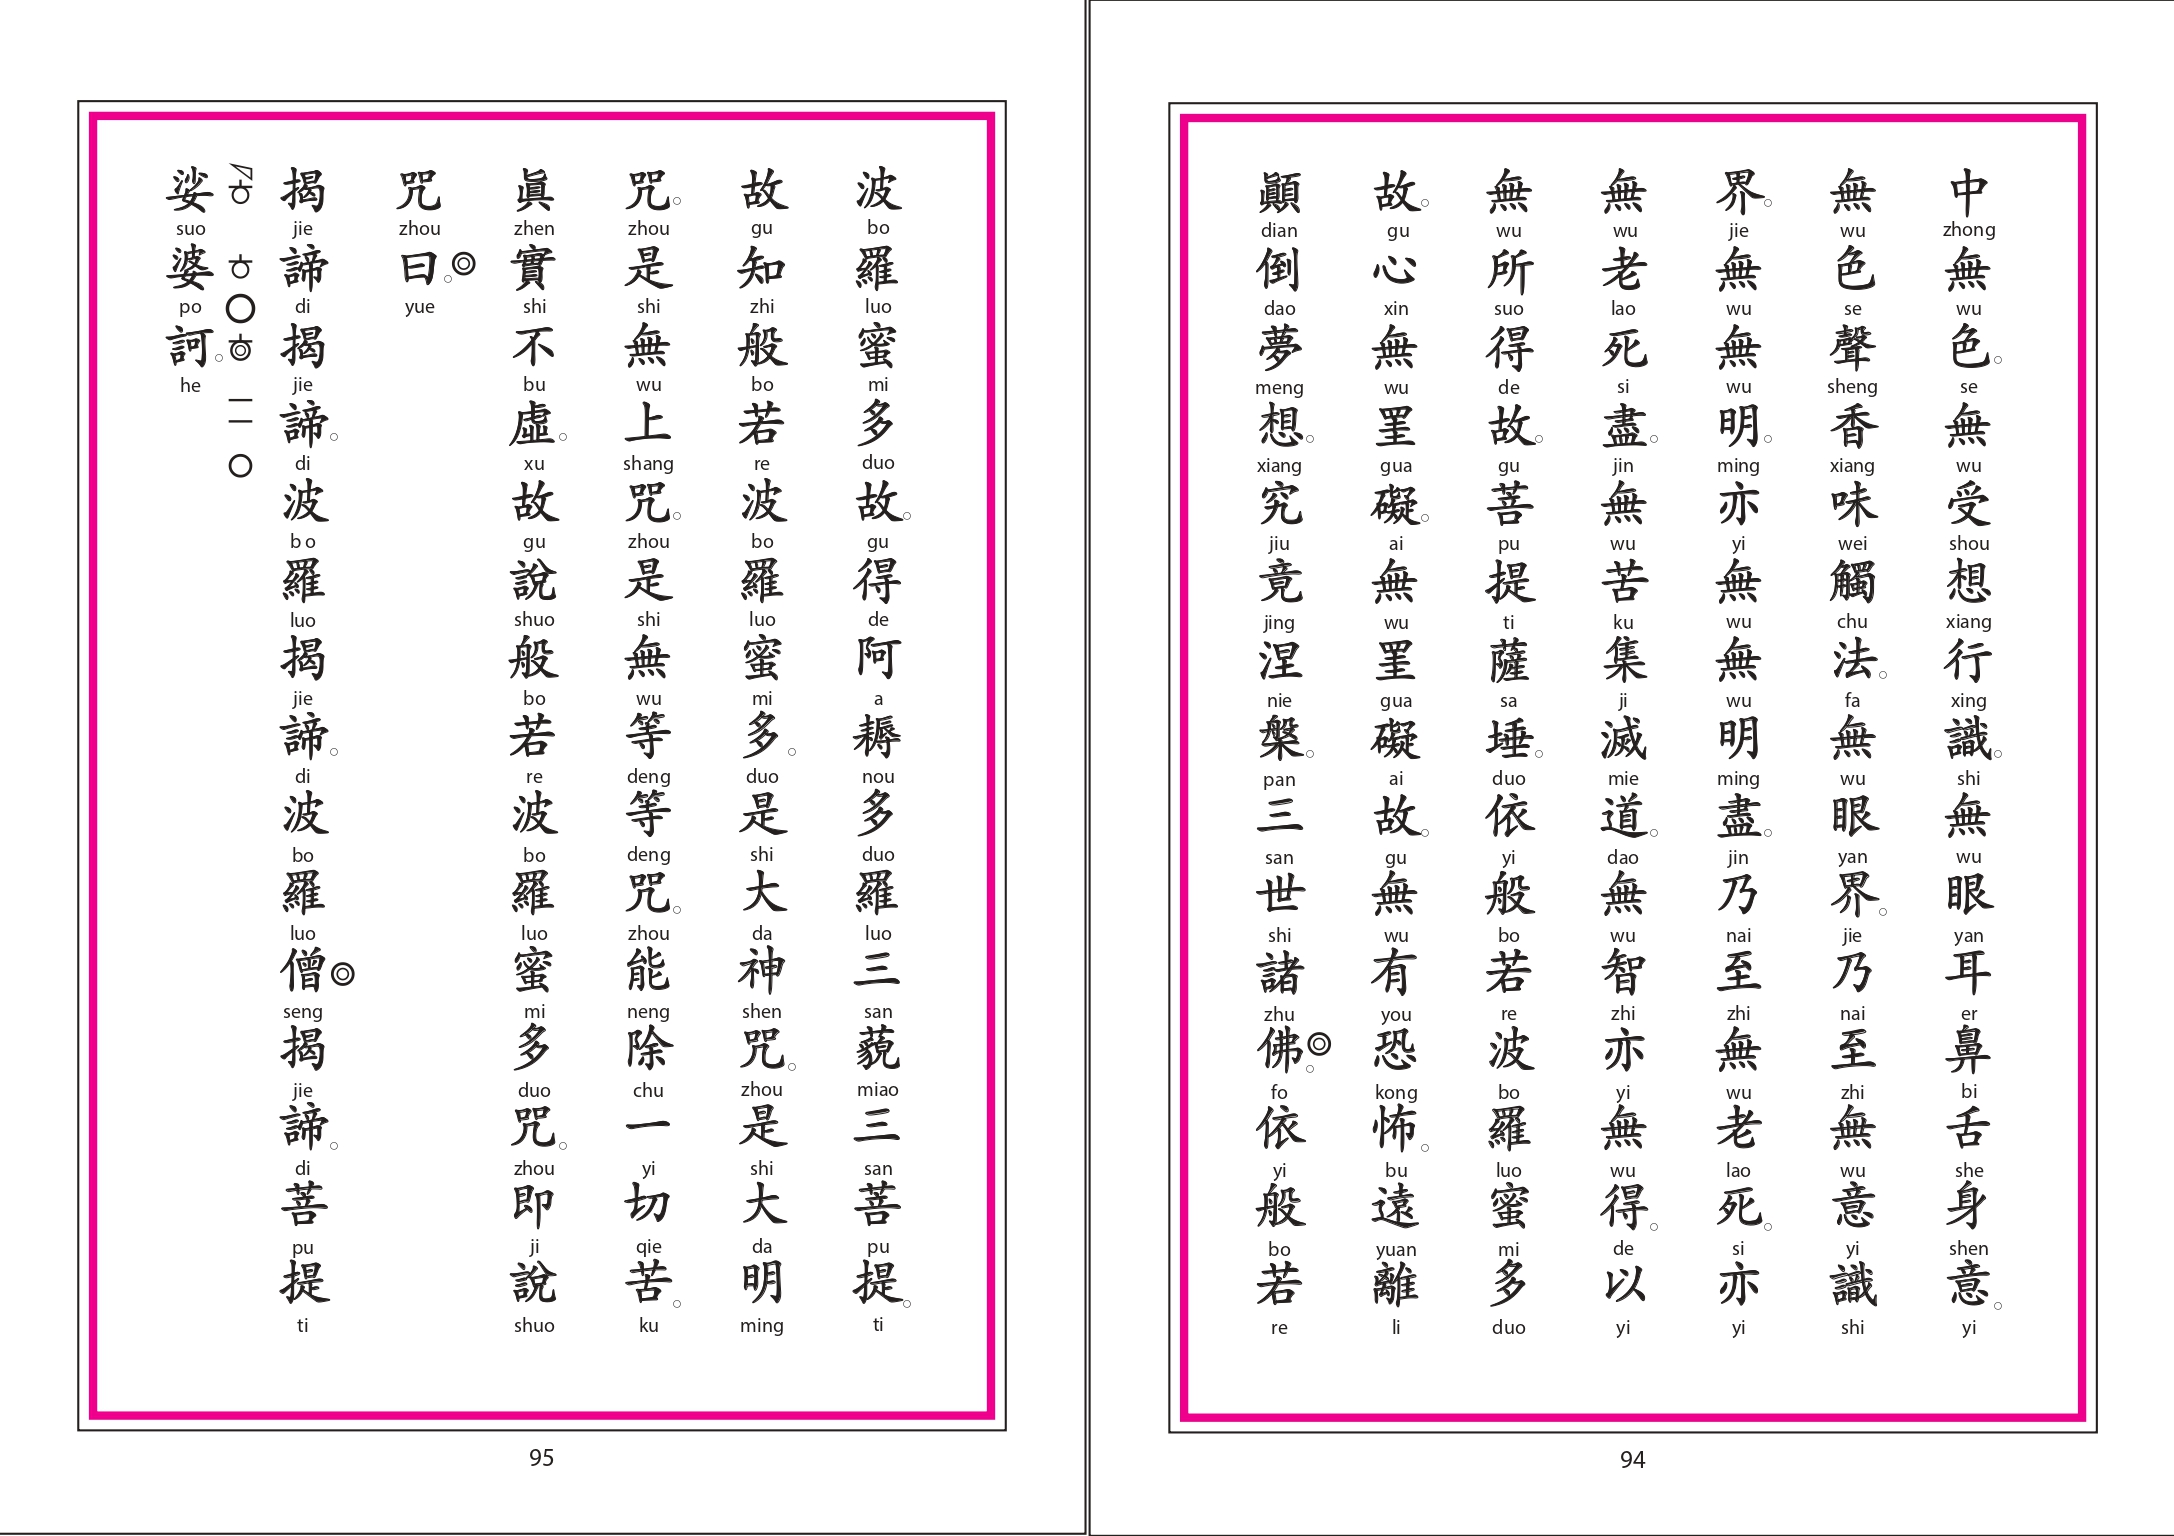 中無色。無受想行識。無眼耳鼻舌身意。
zhong wu se wu shou xiang xing shi wu yan er bi she shen yi
無色聲香味觸法。無眼界。乃至無意識
wu se sheng xiang wei chu fa wu yan jie nai zhi wu yi shi
界。無無明。亦無無明盡。乃至無老死。亦
jie wu wu ming yi wu wu ming jin nai zhi wu lao si yi
無老死盡。無苦集滅道。無智亦無得。以
wu lao si jin wu ku ji mie dao wu zhi yi wu de yi
無所得故。菩提薩埵。依般若波羅蜜多
wu suo de gu pu ti sa duo yi bo re bo luo mi duo
故。心無罣礙。無罣礙故。無有恐怖。遠離
gu xin wu gua ai wu gua ai gu wu you kong bu yuan li
顚倒夢想。究竟涅槃。三世諸佛。◎依般若
dian dao meng xiang jiu jing nie pan san shi zhu fo yi bo re
94
波羅蜜多故。得阿耨多羅三藐三菩提。
bo luo mi duo gu de a nou duo luo san miao san pu ti
故知般若波羅蜜多。是大神咒。是大明
gu zhi bo re bo luo mi duo shi da shen zhou shi da ming
咒。是無上咒。是無等等咒。能除一切苦。
zhou shi wu shang zhou shi wu deng deng zhou neng chu yi qie ku
眞實不虛。故說般若波羅蜜多咒。即說
zhen shi bu xu gu shuo bo re bo luo mi duo zhou ji shuo
咒曰。◎
zhou yue
揭諦揭諦。波羅揭諦。波羅僧◎揭諦。菩提
jie di jie di bo luo jie di bo luo seng jie di pu ti
娑婆訶。
suo po he
95